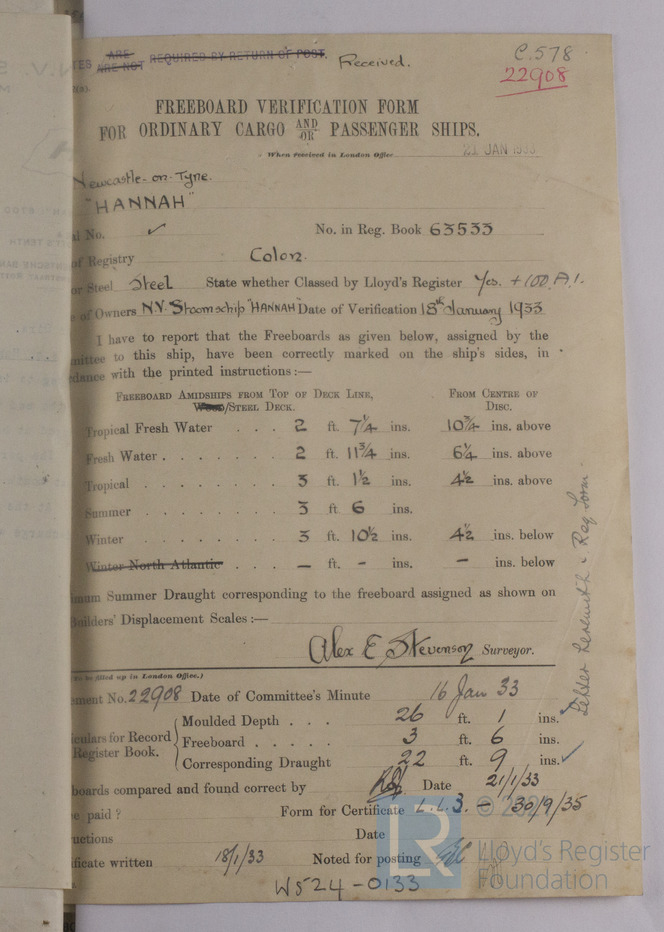 ARE
TES ARE NOT REQUIRED BY RETURN OF POST.
Received.
C.578
22908
FREEBOARD VERIFICATION FORM
FOR ORDINARY CARGO AND/OR PASSENGER SHIPS.
When received in London Office 21 JAN 1933
Newcastle-on-Tyne.
"HANNAH"
al No. ✓ No. in Reg. Book 63533
of Registry Colon.
or Steel Steel State whether Classed by Lloyd's Register Yes. +100.A.1.
e of Owners N.V. Stoomschip "HANNAH" Date of Verification 18th January 1933
I have to report that the Freeboards as given below, assigned by the
mittee to this ship, have been correctly marked on the ship's sides, in
dance with the printed instructions :—
FREEBOARD AMIDSHIPS FROM TOP OF DECK LINE, FROM CENTRE OF
WOOD/STEEL DECK. DISC.
Tropical Fresh Water . . . 2 ft. 7¼ ins. 10¾ ins. above
Fresh Water . . . . . . . 2 ft. 11¾ ins. 6¼ ins. above
Tropical . . . . . . . . 3 ft. 1½ ins. 4½ ins. above
Summer . . . . . . . . 3 ft. 6 ins.
Winter . . . . . . . . 3 ft. 10½ ins. 4½ ins. below
Winter North Atlantic . . . . — ft. - ins. — ins. below
imum Summer Draught corresponding to the freeboard assigned as shown on
Builders' Displacement Scales :—
Alex E Stevenson Surveyor.
to be filled up in London Office.)
ement No. 22908 Date of Committee's Minute 16 Jan 33
Moulded Depth . . . 26 ft. 1 ins.
iculars for Record Freeboard . . . . . 3 ft. 6 ins.
Register Book. Corresponding Draught 22 ft. 9 ins. ✓
boards compared and found correct by Date 21/1/33
e paid ? Form for Certificate L.L.3. — 30/9/35
uctions Date
ficate written 18/1/33 Noted for posting
W524-0133
Letter herewith & Reg form
LR
©
Lloyd's Register
Foundation